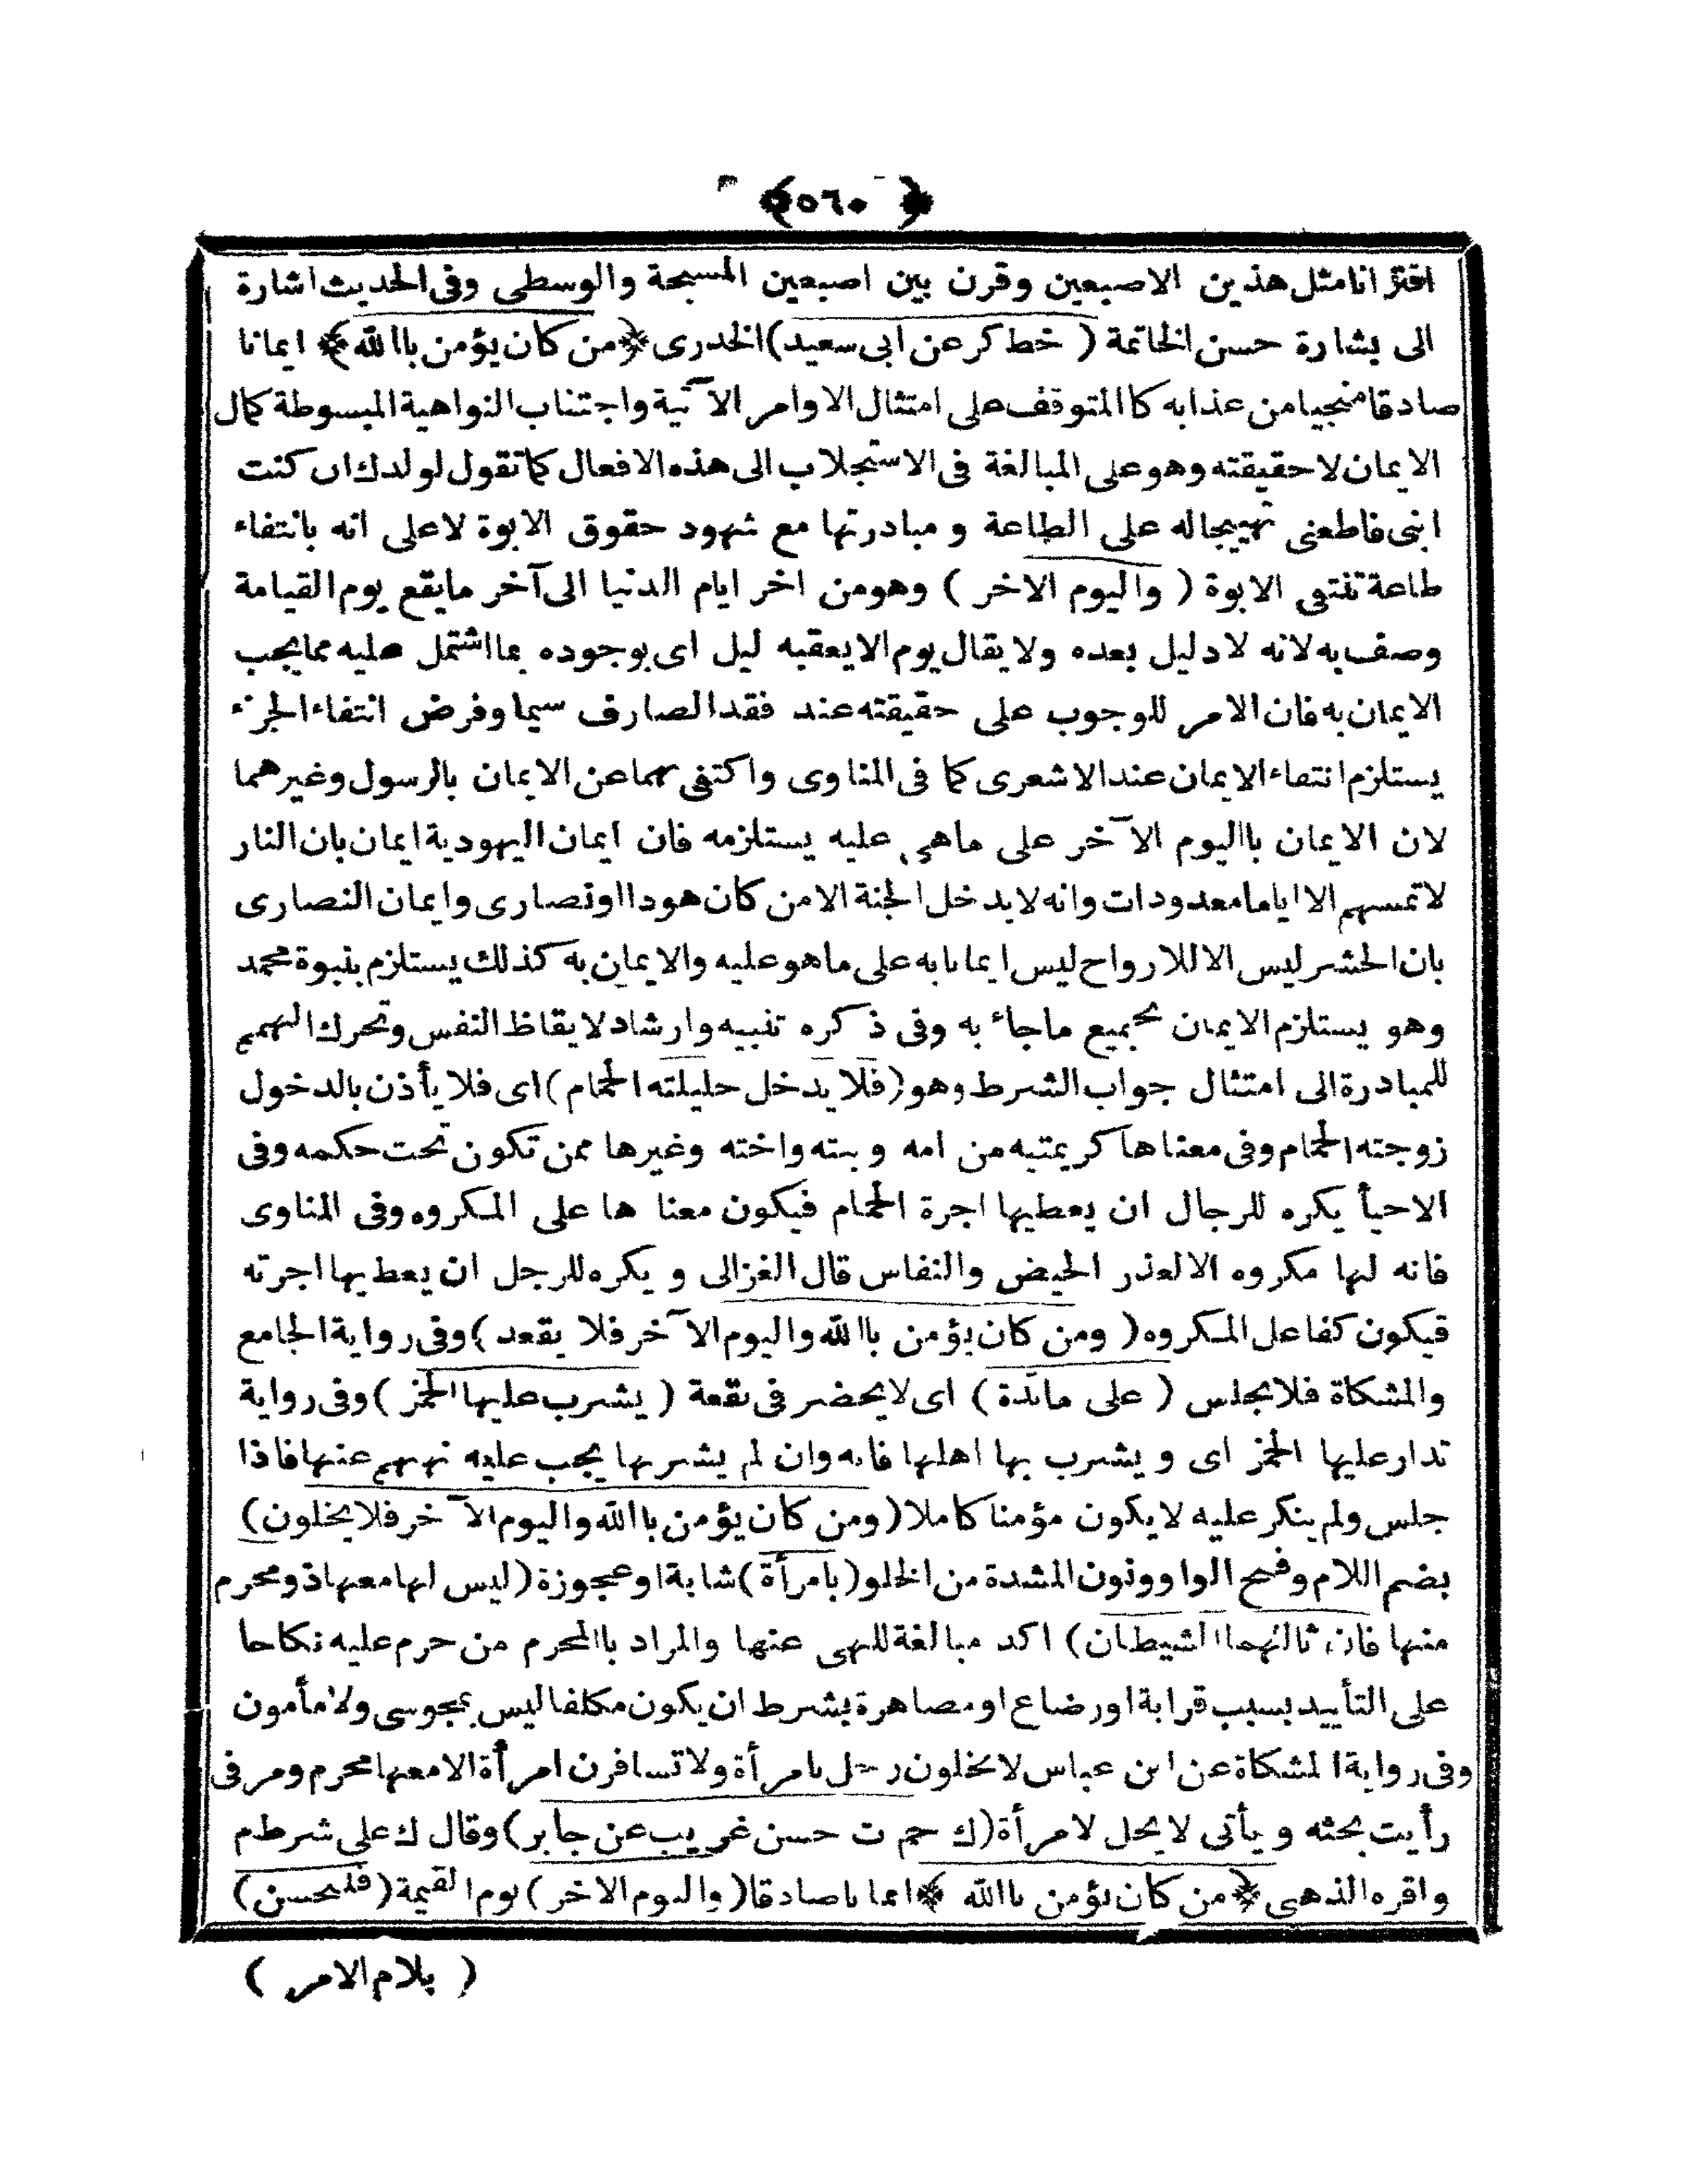 ﴿٥٦٠﴾
اقترانا مثل هذين الاصبعين وقرن بين اصبعين المسبحة والوسطى وفى الحديث اشارة
الى بشارة حسن الخاتمة ( خط كر عن ابى سعيد) الخدرى ﴿من كان يؤمن باالله﴾ ايمانا
صادقا منجيا من عذابه كا المتوقف على امتثال الاوامر الآتية واجتناب النواهية المبسوطة كمال
الايمان لا حقيقته وهو على المبالغة فى الاستجلاب الى هذه الافعال كما تقول لولدك ان كنت
ابنى فاطعنى تهييجاله على الطاعة و مبادرتها مع شهود حقوق الابوة لاعلى انه بانتفاء
طاعة تنتفى الابوة ( واليوم الاخر ) وهو من اخر ايام الدنيا الى آخر مايقع يوم القيامة
وصف به لانه لادليل بعده ولايقال يوم الايعقبه ليل اى بوجوده بما اشتمل عليه مما يجب
الايمان به فان الامر للوجوب على حقيقته عند فقد الصارف سيما وفرض انتفاء الجزء
يستلزم انتفاء الايمان عند الاشعرى كما فى المناوى واكتفى بهما عن الايمان بالرسول وغيرهما
لان الايمان باليوم الآخر على ماهى عليه يستلزمه فان ايمان اليهودية ايمان بان النار
لاتمسهم الا اياما معدودات وانه لايدخل الجنة الامن كان هودا اونصارى وايمان النصارى
بان الحشر ليس الا للارواح ليس ايمانا به على ماهو عليه والايمان به كذلك يستلزم بنبوة محمد
وهو يستلزم الايمان بجميع ماجاء به وفى ذكره تنبيه وارشاد لايقاظ النفس وتحرك الهمم
للمبادرة الى امتثال جواب الشرط وهو (فلا يدخل حليلته الحمام) اى فلا يأذن بالدخول
زوجته الحمام وفى معناها كريمتيه من امه و بنته واخته وغيرها ممن تكون تحت حكمه وفى
الاحيأ يكره للرجال ان يعطيها اجرة الحمام فيكون معنا ها على المكروه وفى المناوى
فانه لها مكروه الالعذر الحيض والنفاس قال الغزالى و يكره للرجل ان يعطيها اجرته
فيكون كفاعل المكروه ( ومن كان يؤمن باالله واليوم الآخر فلا يقعد ) وفى رواية الجامع
والمشكاة فلا يجلس ( على مائدة ) اى لا يحضر فى بقعة ( يشرب عليها الخمر ) وفى رواية
تدار عليها الخمر اى و يشرب بها اهلها فانه وان لم يشربها يجب عليه نهيهم عنها فاذا
جلس ولم ينكر عليه لايكون مؤمنا كاملا (ومن كان يؤمن باالله واليوم الآخر فلا يخلون)
بضم اللام وفتح الواو ونون المشدة من الخلو (بامرأة) شابة او عجوزة (ليس لها معها ذو محرم
منها فان ثالثهما الشيطان) اكد مبالغة للنهى عنها والمراد باالمحرم من حرم عليه نكاحا
على التأييد بسبب قرابة او رضاع او مصاهرة بشرط ان يكون مكلفا ليس بمجوسى ولا مأمون
وفى رواية المشكاة عن ابن عباس لايخلون رجل بامرأة ولاتسافرن امرأة الامعها محرم ومر فى
رأيت بحثه و يأتى لايحل لامرأة (ك حم ت حسن غريب عن جابر) وقال ك على شرط م
واقره الذهبى ﴿من كان يؤمن باالله﴾ ايمانا صادقا (واليوم الاخر) يوم القيمة (فليحسن)
( بلام الامر )